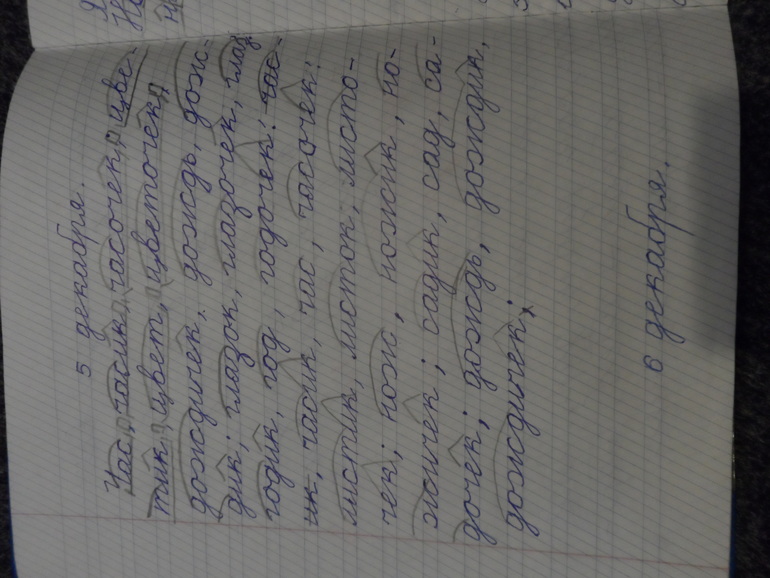 5 декабря.
Час, часик, часочек, цве-
тик, цвет, цветочек,
дождичек, дождь, дож-
дик; глазок, глазочек, глаз
годик, год, годочек; час-
ик, часик, час, часочек;
листик, листок, листо-
чек; нож, ножик, но-
жичек; садик, сад, са-
дочек; дождь, дождик,
дождичек;
6 декабря.